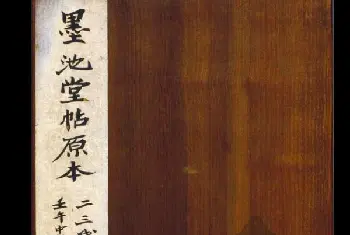 墨池堂帖原本
二三
壬午中